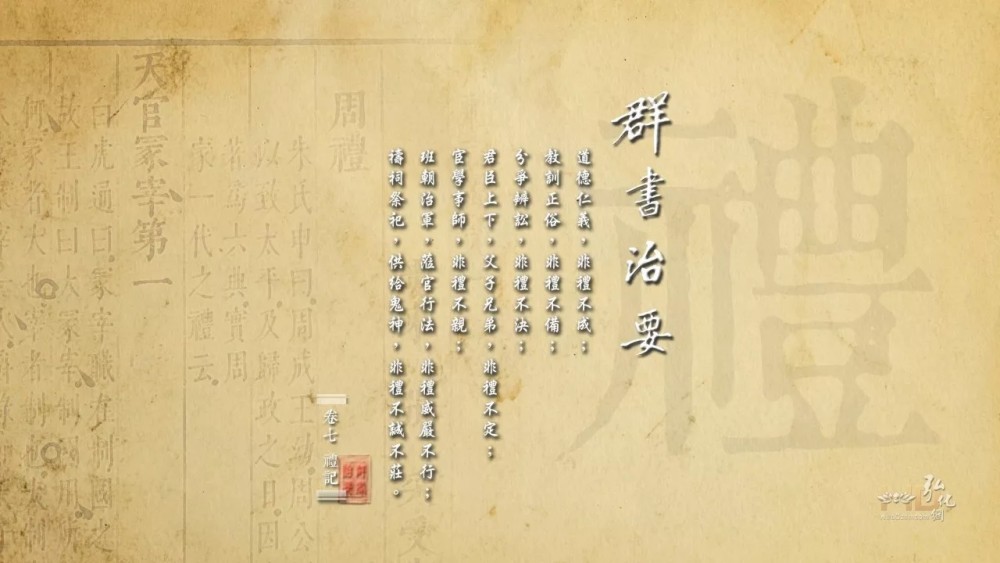 禮
群書治要
道德仁義，非禮不成；
教訓正俗，非禮不備；
分爭辨訟，非禮不決；
君臣上下，父子兄弟，非禮不定；
宦學事師，非禮不親；
班朝治軍，蒞官行法，非禮威嚴不行；
禱祠祭祀，供給鬼神，非禮不誠不莊。
卷七 禮記
周禮
朱氏申曰周成王幼周公
以致太平及歸政之日因
六典實周
家一代之禮云
天官冢宰第一
白虎通曰冢宰職在制國之
故王制曰大冢宰制國用
弘化